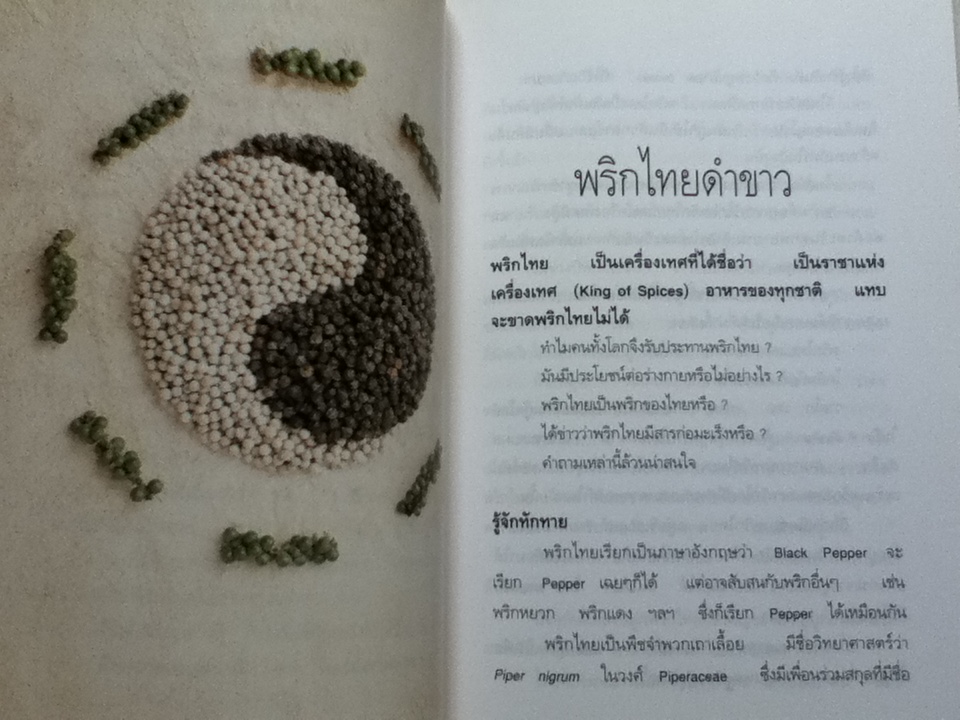 พริกไทยดำขาว
พริกไทย เป็นเครื่องเทศที่ได้ชื่อว่า เป็นราชาแห่ง
เครื่องเทศ (King of Spices) อาหารของทุกชาติ แทบ
จะขาดพริกไทยไม่ได้
ทำไมคนทั้งโลกจึงรับประทานพริกไทย ?
มันมีประโยชน์ต่อร่างกายหรือไม่อย่างไร ?
พริกไทยเป็นพริกของไทยหรือ ?
ได้ข่าวว่าพริกไทยมีสารก่อมะเร็งหรือ ?
คำถามเหล่านี้ล้วนน่าสนใจ
รู้จักทักทาย
พริกไทยเรียกเป็นภาษาอังกฤษว่า Black Pepper จะ
เรียก Pepper เฉยๆก็ได้ แต่อาจสับสนกับพริกอื่นๆ เช่น
พริกหยวก พริกแดง ฯลฯ ซึ่งก็เรียก Pepper ได้เหมือนกัน
พริกไทยเป็นพืชจำพวกเถาเลื้อย มีชื่อวิทยาศาสตร์ว่า
Piper nigrum ในวงศ์ Piperaceae ซึ่งมีเพื่อนร่วมสกุลที่มีชื่อ